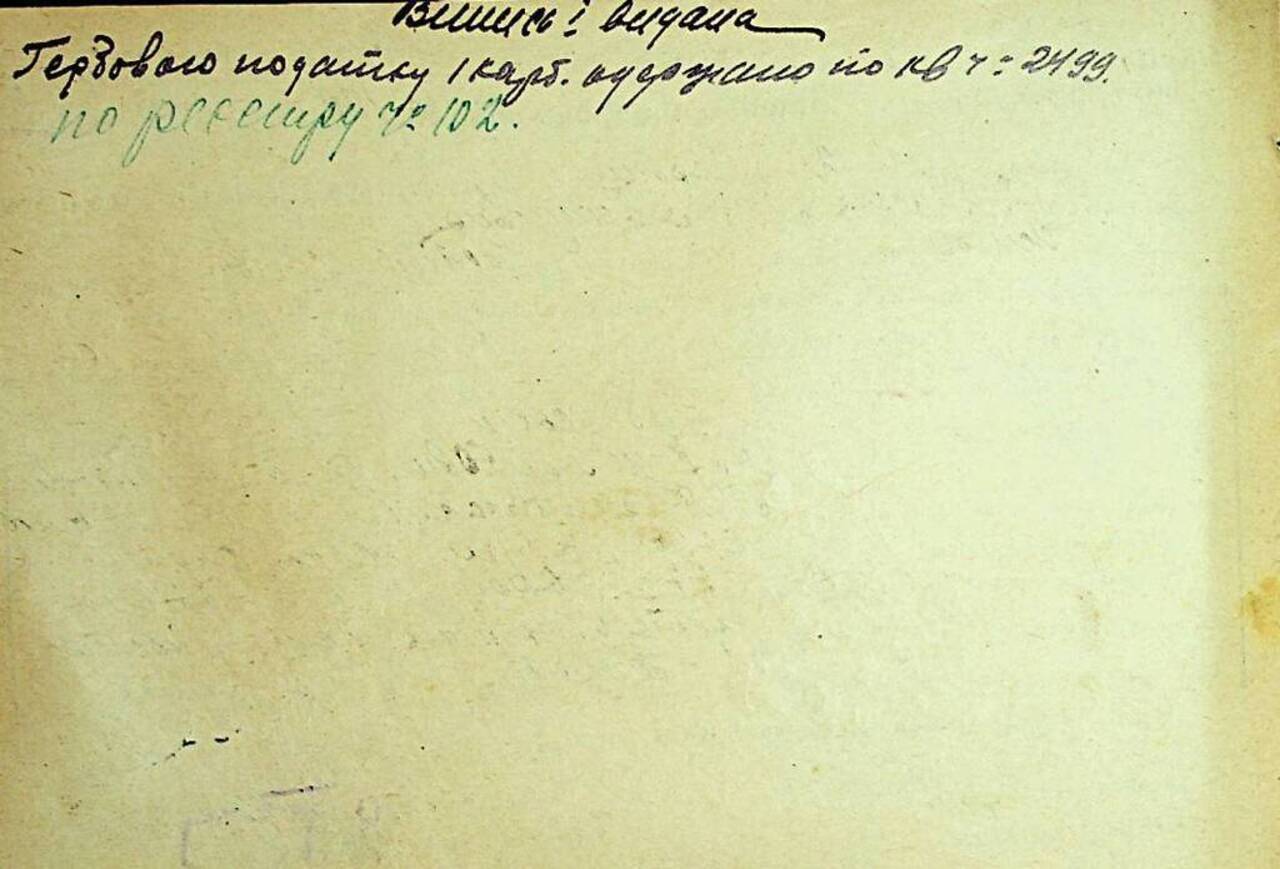 Випись і видана
Гербового податку 1 карб. одержано по кв ч: 2499.
по реєстру ч: 102.